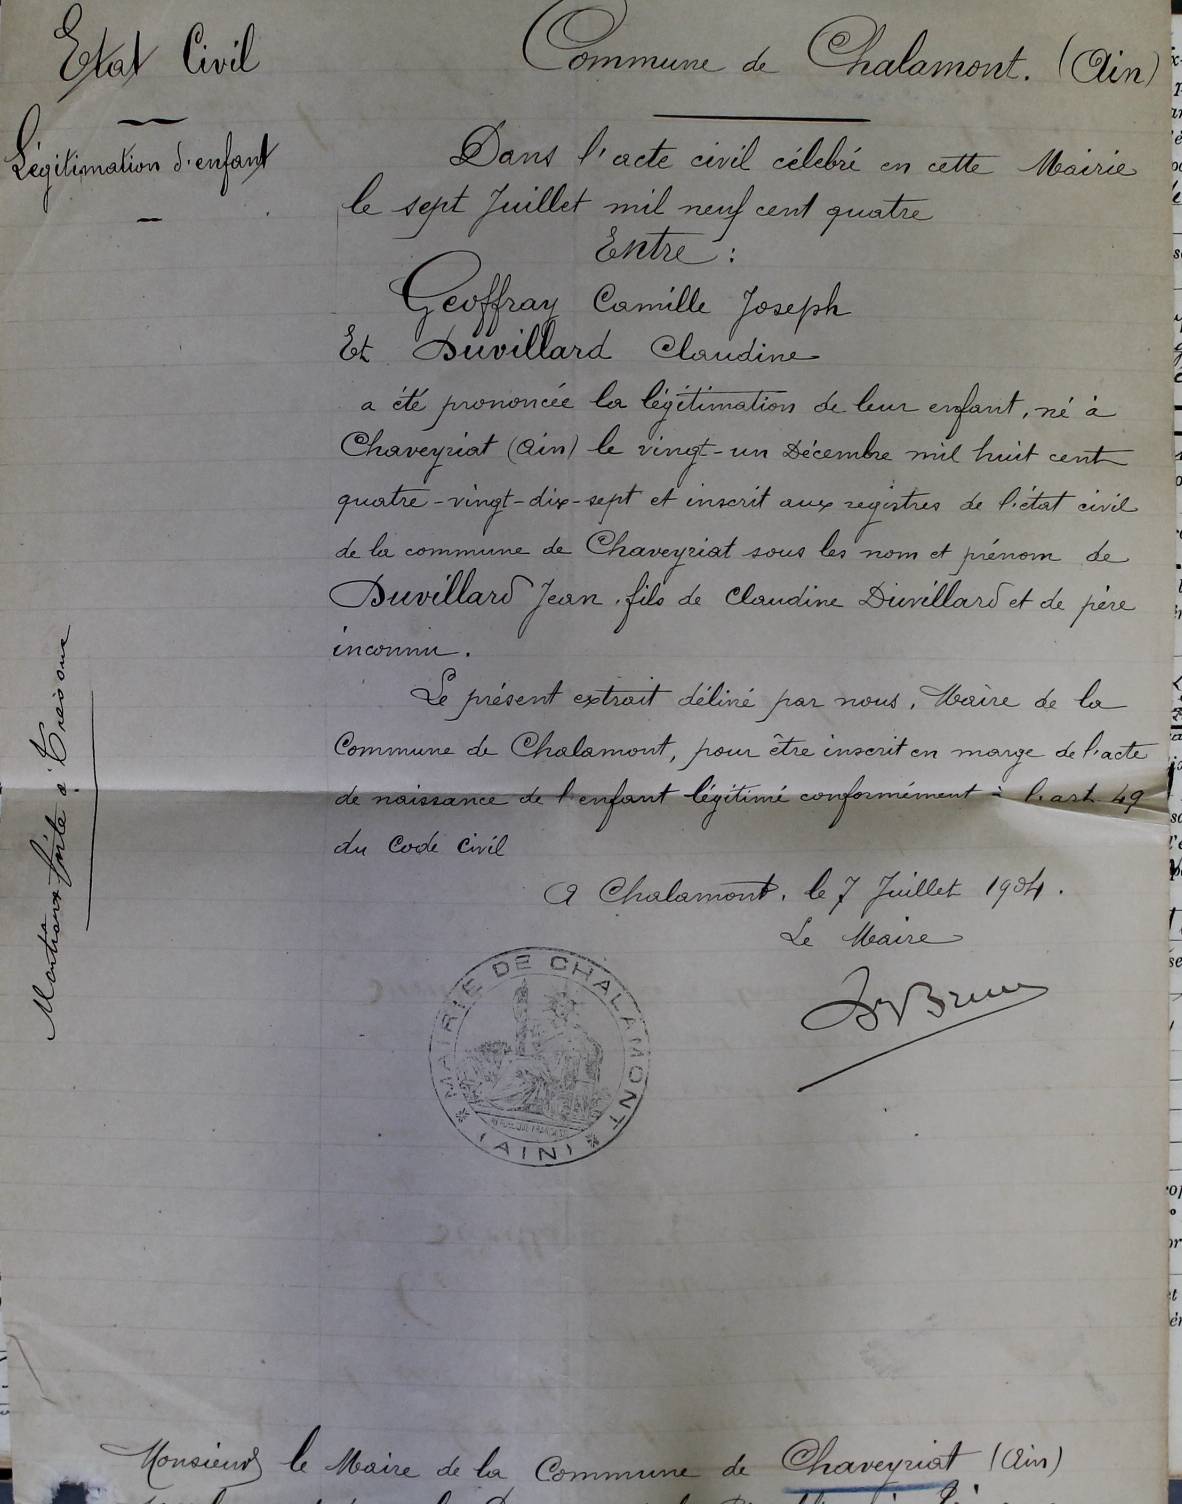 Etat Civil
Commune de Chalamont. (Ain)
Légitimation d'enfant
Dans l'acte civil célebré en cette Mairie
le sept Juillet mil neuf cent quatre
Entre :
Geoffray Camille Joseph
Et Duvillard Claudine
a été prononcée la légitimation de leur enfant, né à
Chaveyriat (Ain) le vingt-un Décembre mil huit cent
quatre-vingt-dix-sept et inscrit aux registres de l'état civil
de la commune de Chaveyriat sous les nom et prénom de
Duvillard Jean, fils de Claudine Duvillard et de père
inconnu.
Le présent extrait délivré par nous, Maire de la
Commune de Chalamont, pour être inscrit en marge de l'acte
de naissance de l'enfant légitimé conformément à l'art 49
du Code Civil
A Chalamont, le 7 Juillet 1904.
Le Maire
MAIRIE DE CHALAMONT
(AIN)
Mention faite à
Monsieur le Maire de la Commune de Chaveyriat (Ain)